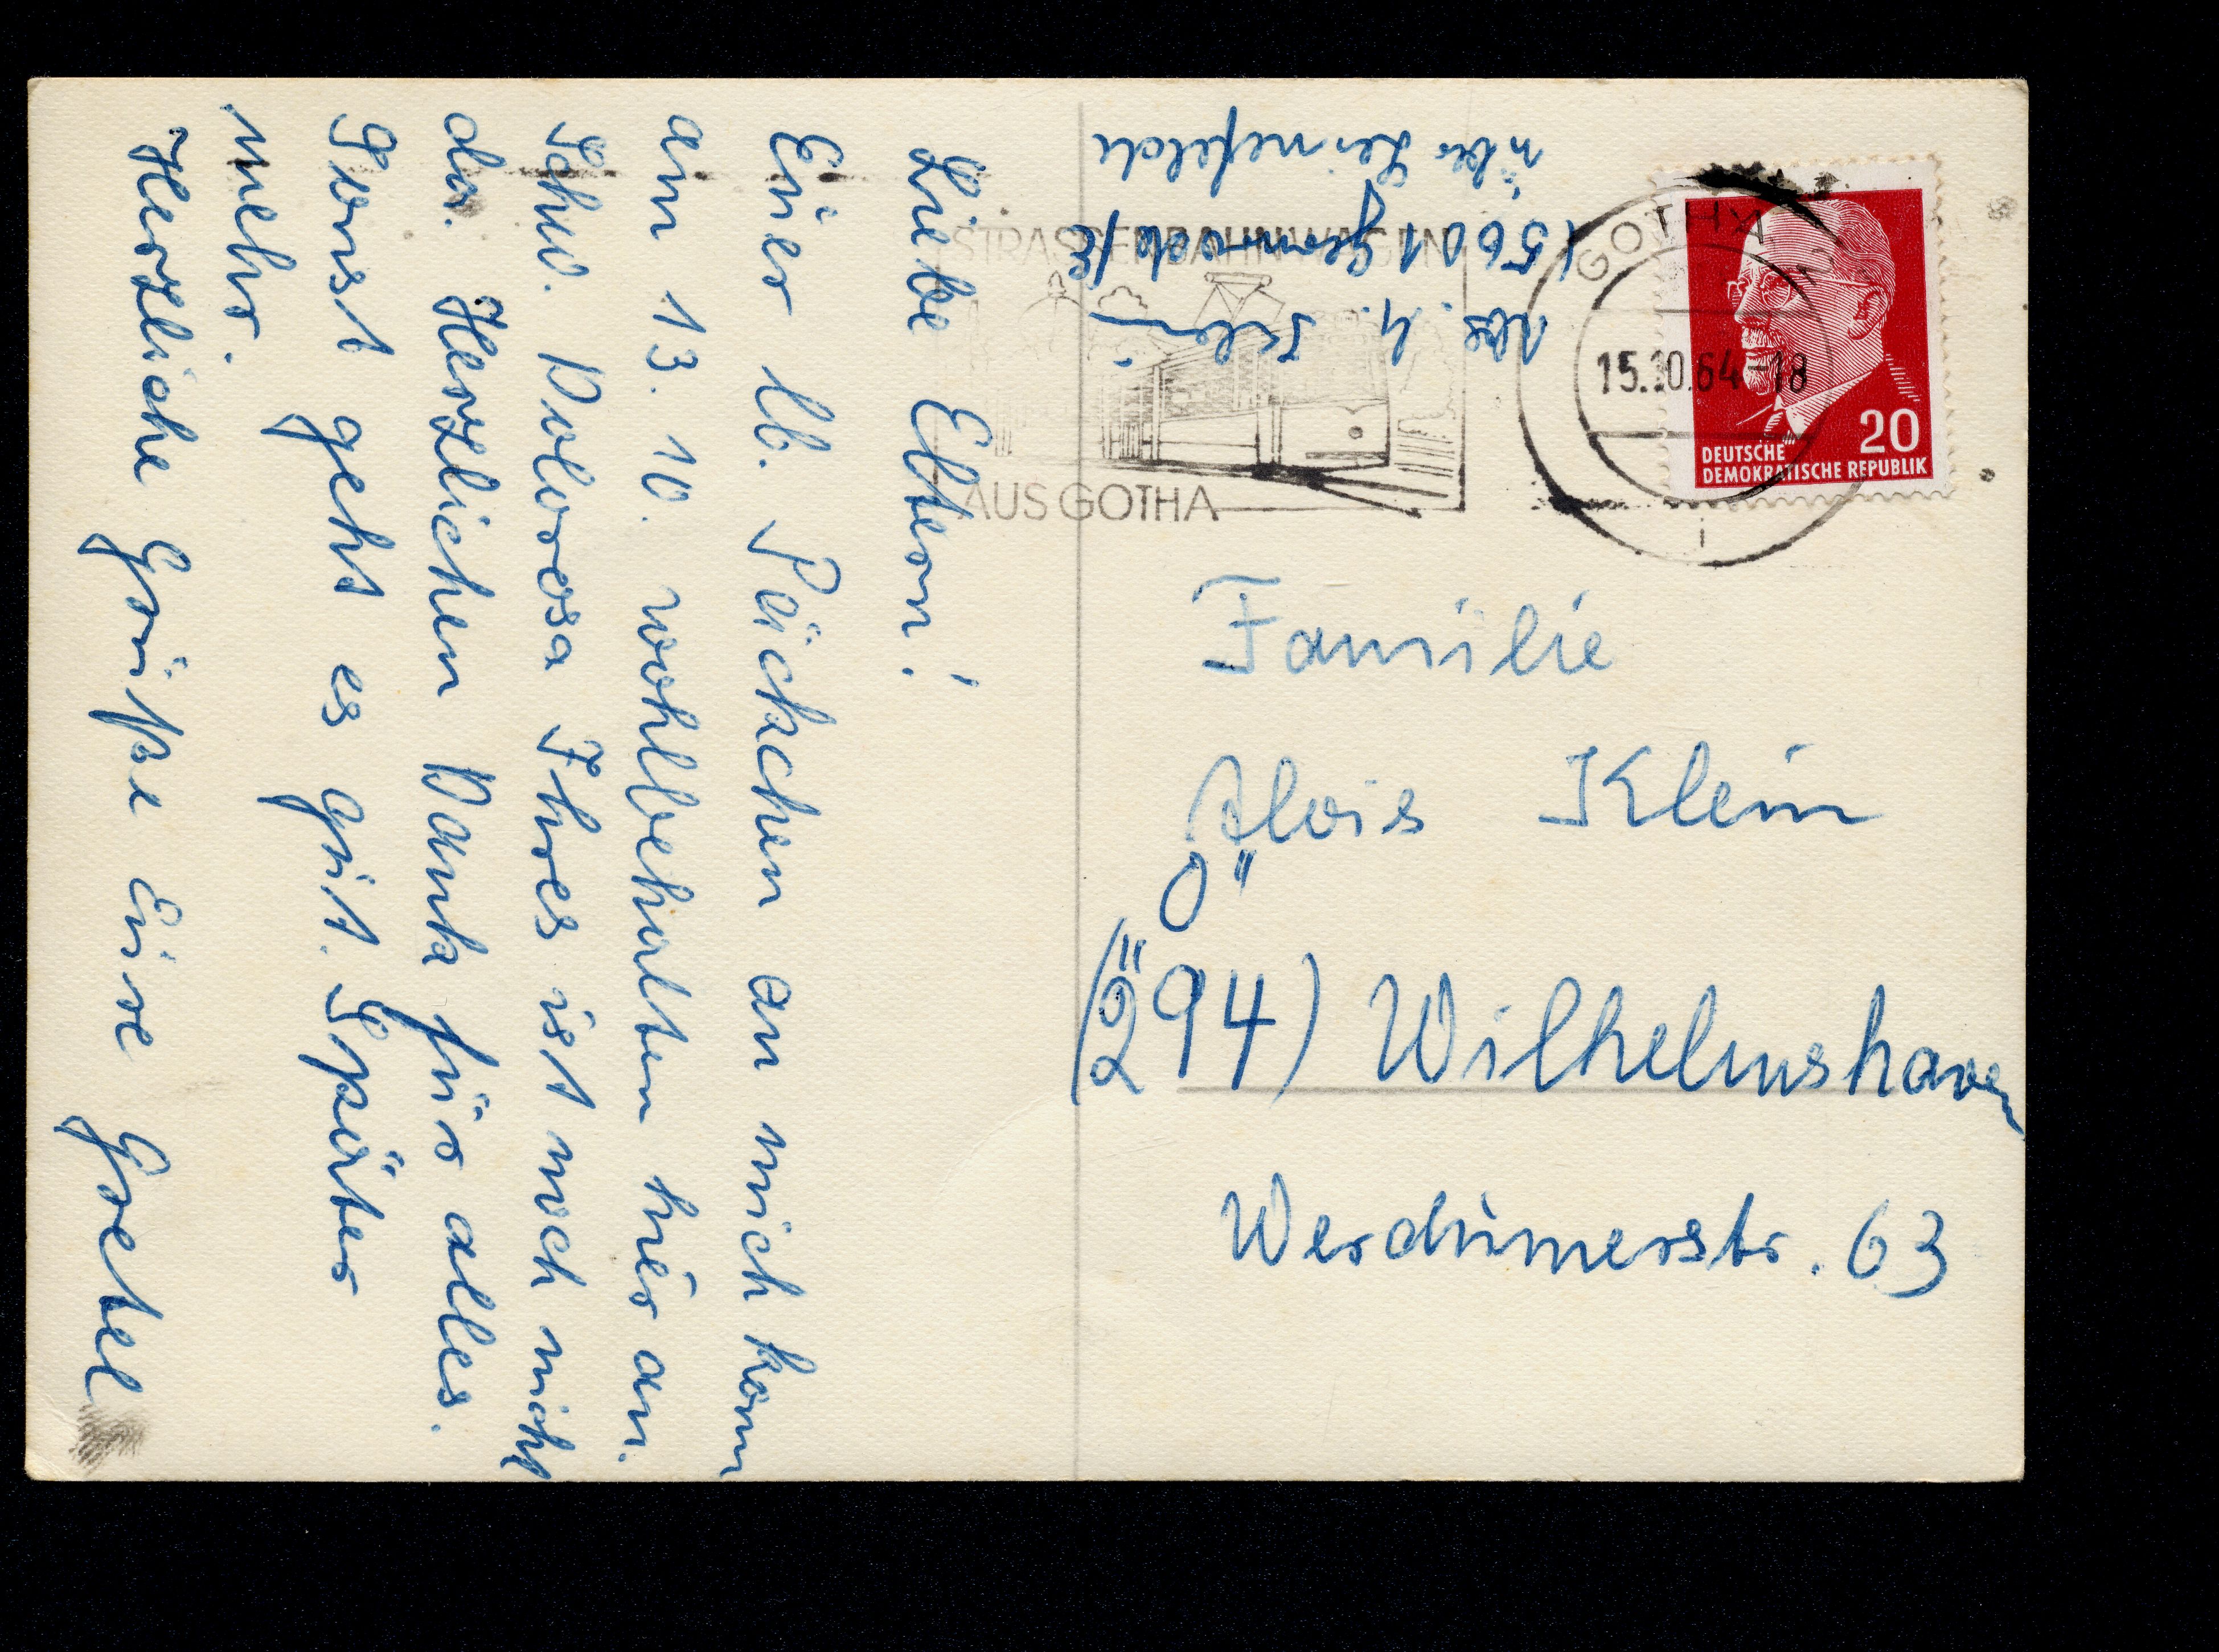 Liebe Eltern!
Euer lb. Päckchen an mich kam
am 13. 10. wohlbehalten hier an.
Schw. Dolorosa Ihres ist noch nicht
da. Herzlichen Dank für alles.
Sonst geht es gut. Später
mehr.
Herzliche Grüße Eure Gretel
Abs. 4.
(5601
über Leinefelde
STRASSENBAHNWAGEN
AUS GOTHA
GOTHA
15.10.64-18
i
20
DEUTSCHE
DEMOKRATISCHE REPUBLIK
Familie
Alois Klein
(294) Wilhelmshaven
Werdumerstr. 63